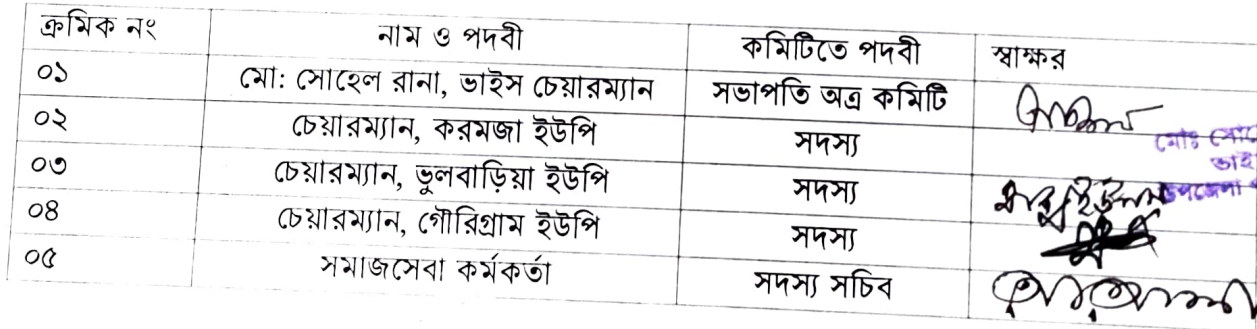 ক্রমিক নং নাম ও পদবী কমিটিতে পদবী স্বাক্ষর
০১ মো: সোহেল রানা, ভাইস চেয়ারম্যান সভাপতি অত্র কমিটি
০২ চেয়ারম্যান, করমজা ইউপি সদস্য
০৩ চেয়ারম্যান, ভুলবাড়িয়া ইউপি সদস্য
০৪ চেয়ারম্যান, গৌরিগ্রাম ইউপি সদস্য
০৫ সমাজসেবা কর্মকর্তা সদস্য সচিব
মোঃ
ভাই
উপজেলা